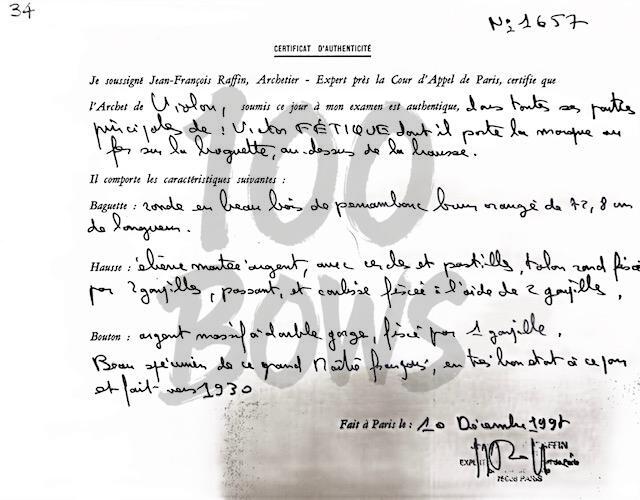 34
No 1657
CERTIFICAT D'AUTHENTICITÉ
Je soussigné Jean-François Raffin, Archetier - Expert près la Cour d'Appel de Paris, certifie que
l'Archet de Violon, soumis ce jour à mon examen est authentique, dans toutes ses parties
principales de : Victor FÉTIQUE dont il porte la marque au
fer sur la baguette, au-dessus de la hausse.
Il comporte les caractéristiques suivantes :
Baguette : ronde en beau bois de pernambouc brun orangé de 72,8 cm
de longueur.
Hausse : ébène montée argent, avec cercles et pastilles, talon rond fixée
par 2 goupilles, passant, et coulisse fixée à l'aide de 2 goupilles.
Bouton : argent massif à double gorge, fixé par 1 goupille.
Beau spécimen de ce grand Maître français, en très bon état à ce jour
et fait vers 1930
100
BOWS
Fait à Paris le : 10 Décembre
FFIN
EXPERT
75008 PARIS